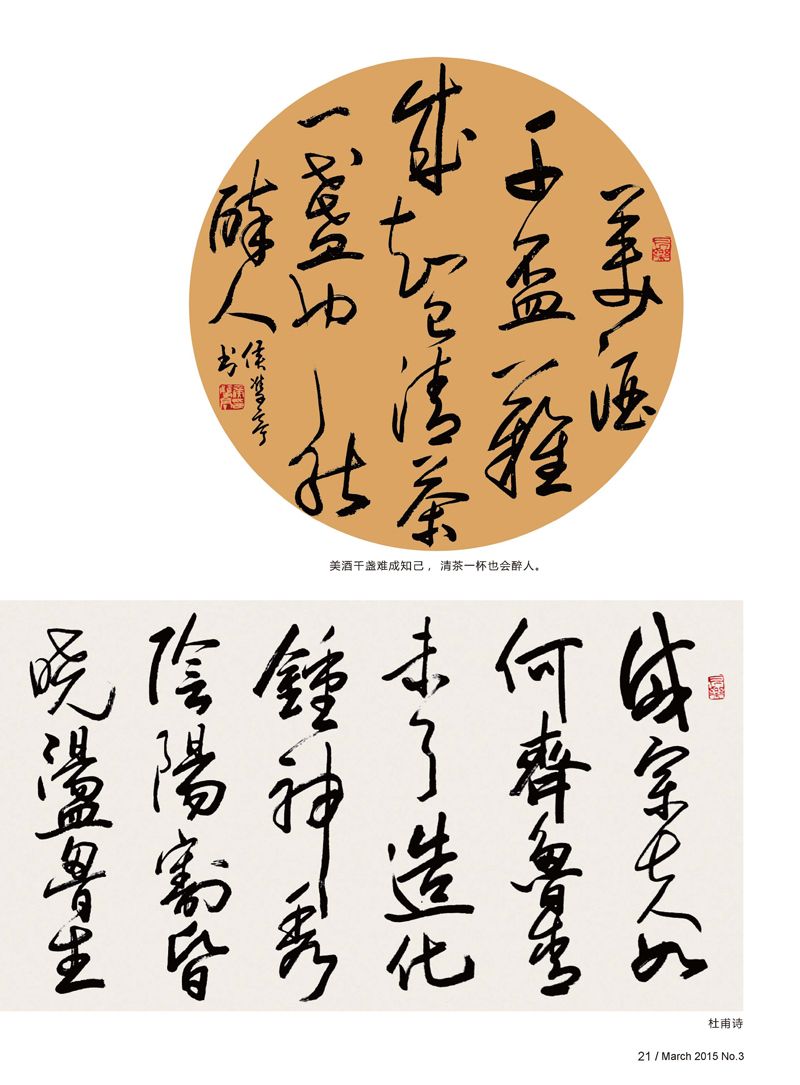 美酒
千盃難
成知己清茶
一盞也能
醉人
侯雙奇
书
美酒千盏难成知己，清茶一杯也会醉人。
岱宗夫如
何齊魯青
未了造化
鍾神秀
陰陽割昏
曉盪胷生
杜甫诗
21 / March 2015 No.3